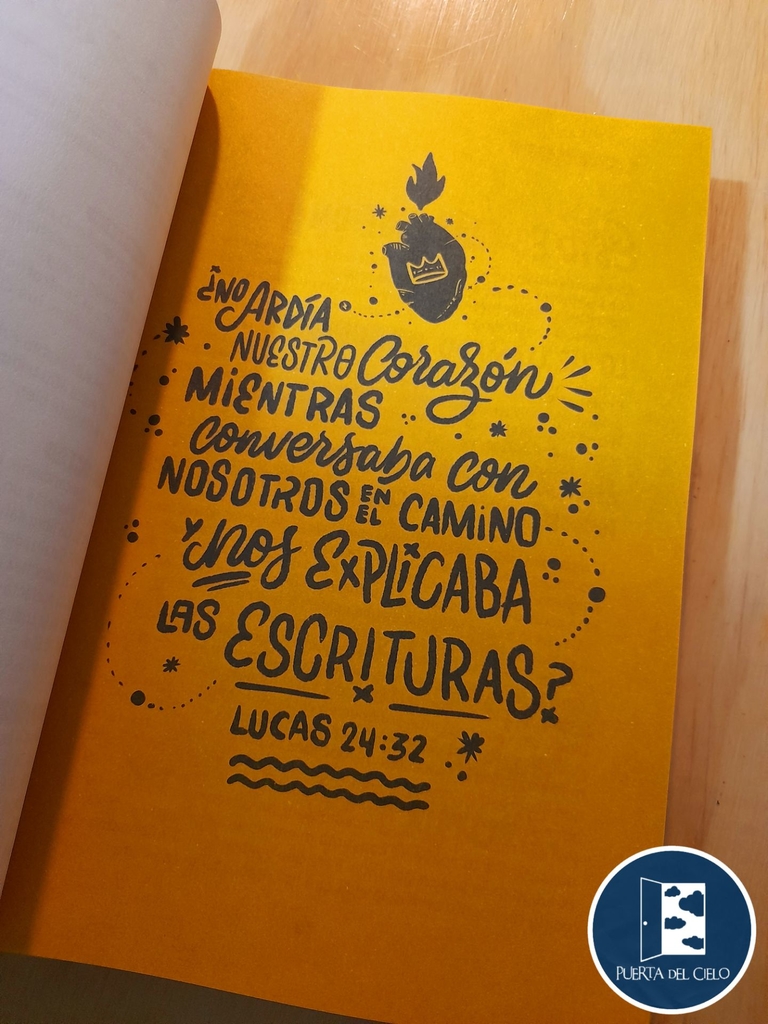 ¿NO ARDÍA
NUESTRO Corazón
MIENTRAS
conversaba con
NOSOTROS EN EL CAMINO
y nos EXPLICABA
LAS ESCRITURAS?
LUCAS 24:32
PUERTA DEL CIELO